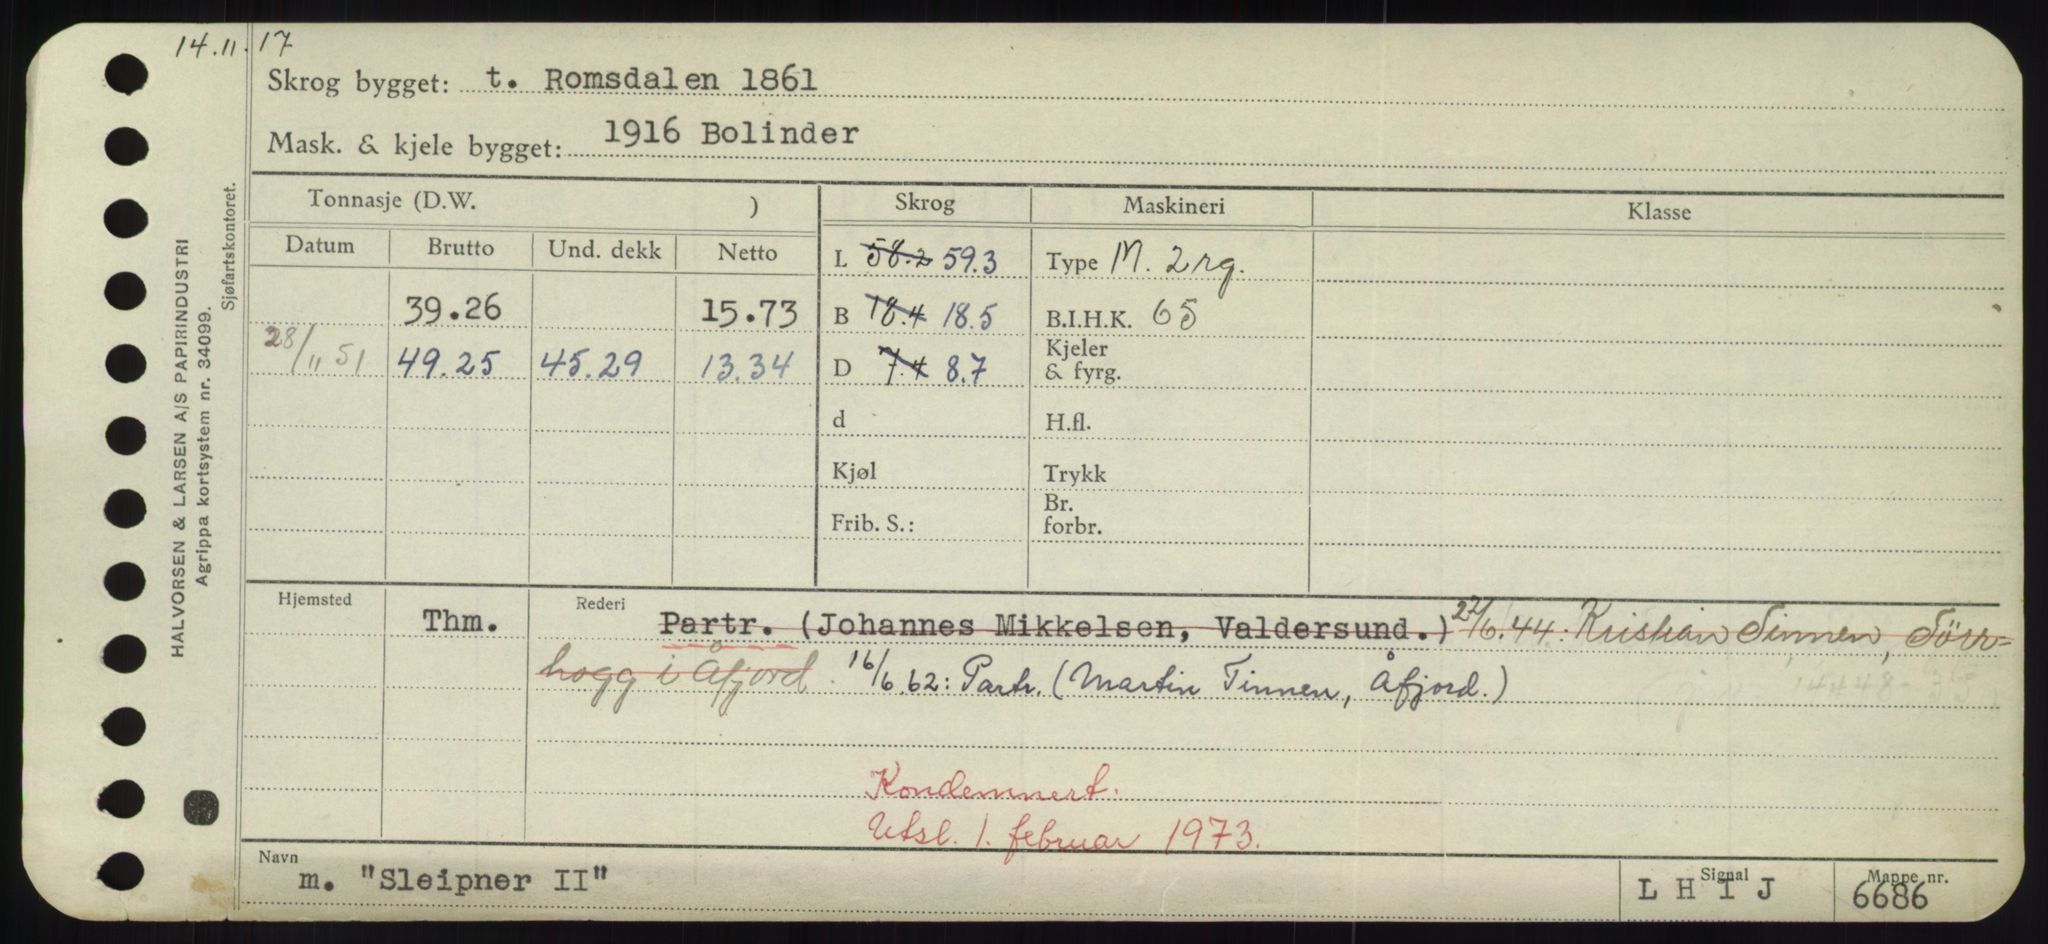 14.11.17
Skrog bygget: t. Romsdalen 1861
Mask. & kjele bygget: 1916 Bolinder
HALVORSEN & LARSEN A/S PAPIRINDUSTRI
Agrippa kortsystem nr. 34099.
Sjøfartskontoret.
Tonnasje (D.W. ) Skrog Maskineri Klasse
Datum Brutto Und. dekk Netto
L 58.2 59.3 Type M. 2 rg.
39.26 15.73 B 18.4 18.5 B.I.H.K. 65
28/11 51 49.25 45.29 13.34 D 7.4 8.7 Kjeler & fyrg.
d H.fl.
Kjøl Trykk
Frib. S.: Br. forbr.
Hjemsted Rederi
Thm. Partr. (Johannes Mikkelsen, Valdersund.) 22/6.44: Kristian Tinnen, Sörr=
hogg i Åfjord. 16/6.62: Partr. (Martin Tinnen, Åfjord.)
Kondemnert.
Utsl. 1. februar 1973.
Navn Signal Mappe nr.
m. "Sleipner II" L H I J 6686